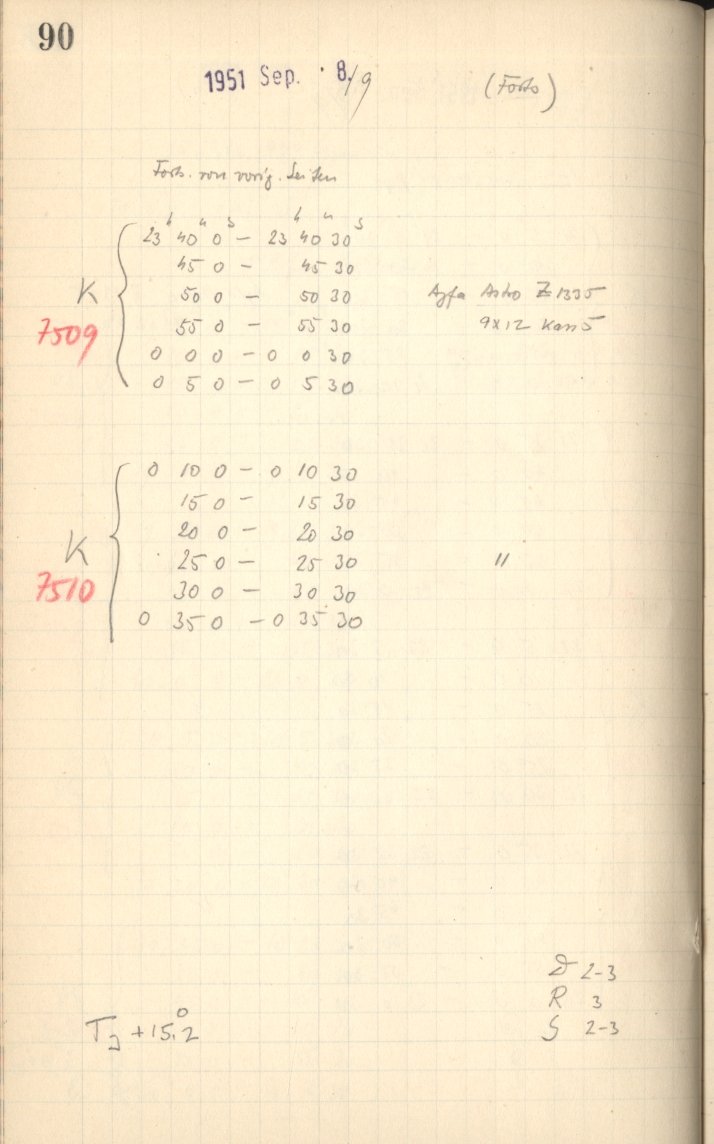 90
1951 Sep. 8./9 (Forts)
Forts. von vorig. Seiten
h m s h m s
23 40 0 – 23 40 30
45 0 – 45 30
K 50 0 – 50 30 Agfa Astro Z 1335
7509 55 0 – 55 30 9x12
0 0 0 – 0 0 30
0 5 0 – 0 5 30
0 10 0 – 0 10 30
15 0 – 15 30
20 0 – 20 30
K 25 0 – 25 30 "
7510 30 0 – 30 30
0 35 0 – 0 35 30
D 2-3
R 3
T +15°.2 S 2-3